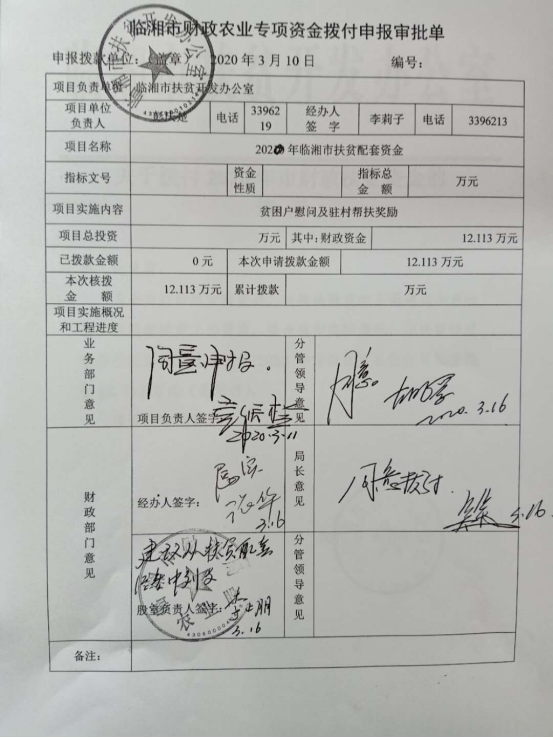 临湘市财政农业专项资金拨付申报审批单
申报拨款单位：（盖章） 2020年3月10日 编号：
项目负责单位 临湘市扶贫开发办公室
项目单位负责人 电话 3396219 经办人签字 李莉子 电话 3396213
项目名称 2020年临湘市扶贫配套资金
指标文号 资金性质 指标总金额 万元
项目实施内容 贫困户慰问及驻村帮扶奖励
项目总投资 万元 其中：财政资金 12.113 万元
已拨款金额 0 元 本次申请拨款金额 12.113 万元
本次核拨金额 12.113 万元 累计拨款 万元
项目实施概况和工程进度
业务部门意见 同意申报。 分管领导意见 同意。
项目负责人签字： 2020.3.16
2020.3.11
财政部门意见 局长意见 同意拨付.
经办人签字： 3.16
3.16
建议从扶贫配套 分管领导意见
资金中列支
股室负责人签字：
3.16
备注：